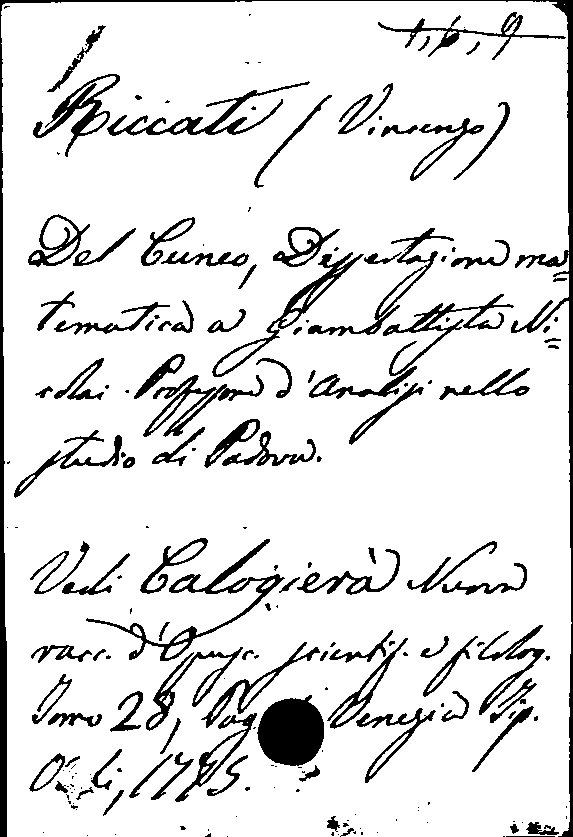 1, 6, 9
Riccati (Vincenzo)
Del Cuneo, Dissertazione ma=
tematica a Giambattista Ni=
colai Professore d'Analisi nello
studio di Padova.
Vedi Calogierà Nuova
racc. d'Opusc. scientif. e filolog.
Tomo 28, Pag Venezia Tip.
1775.